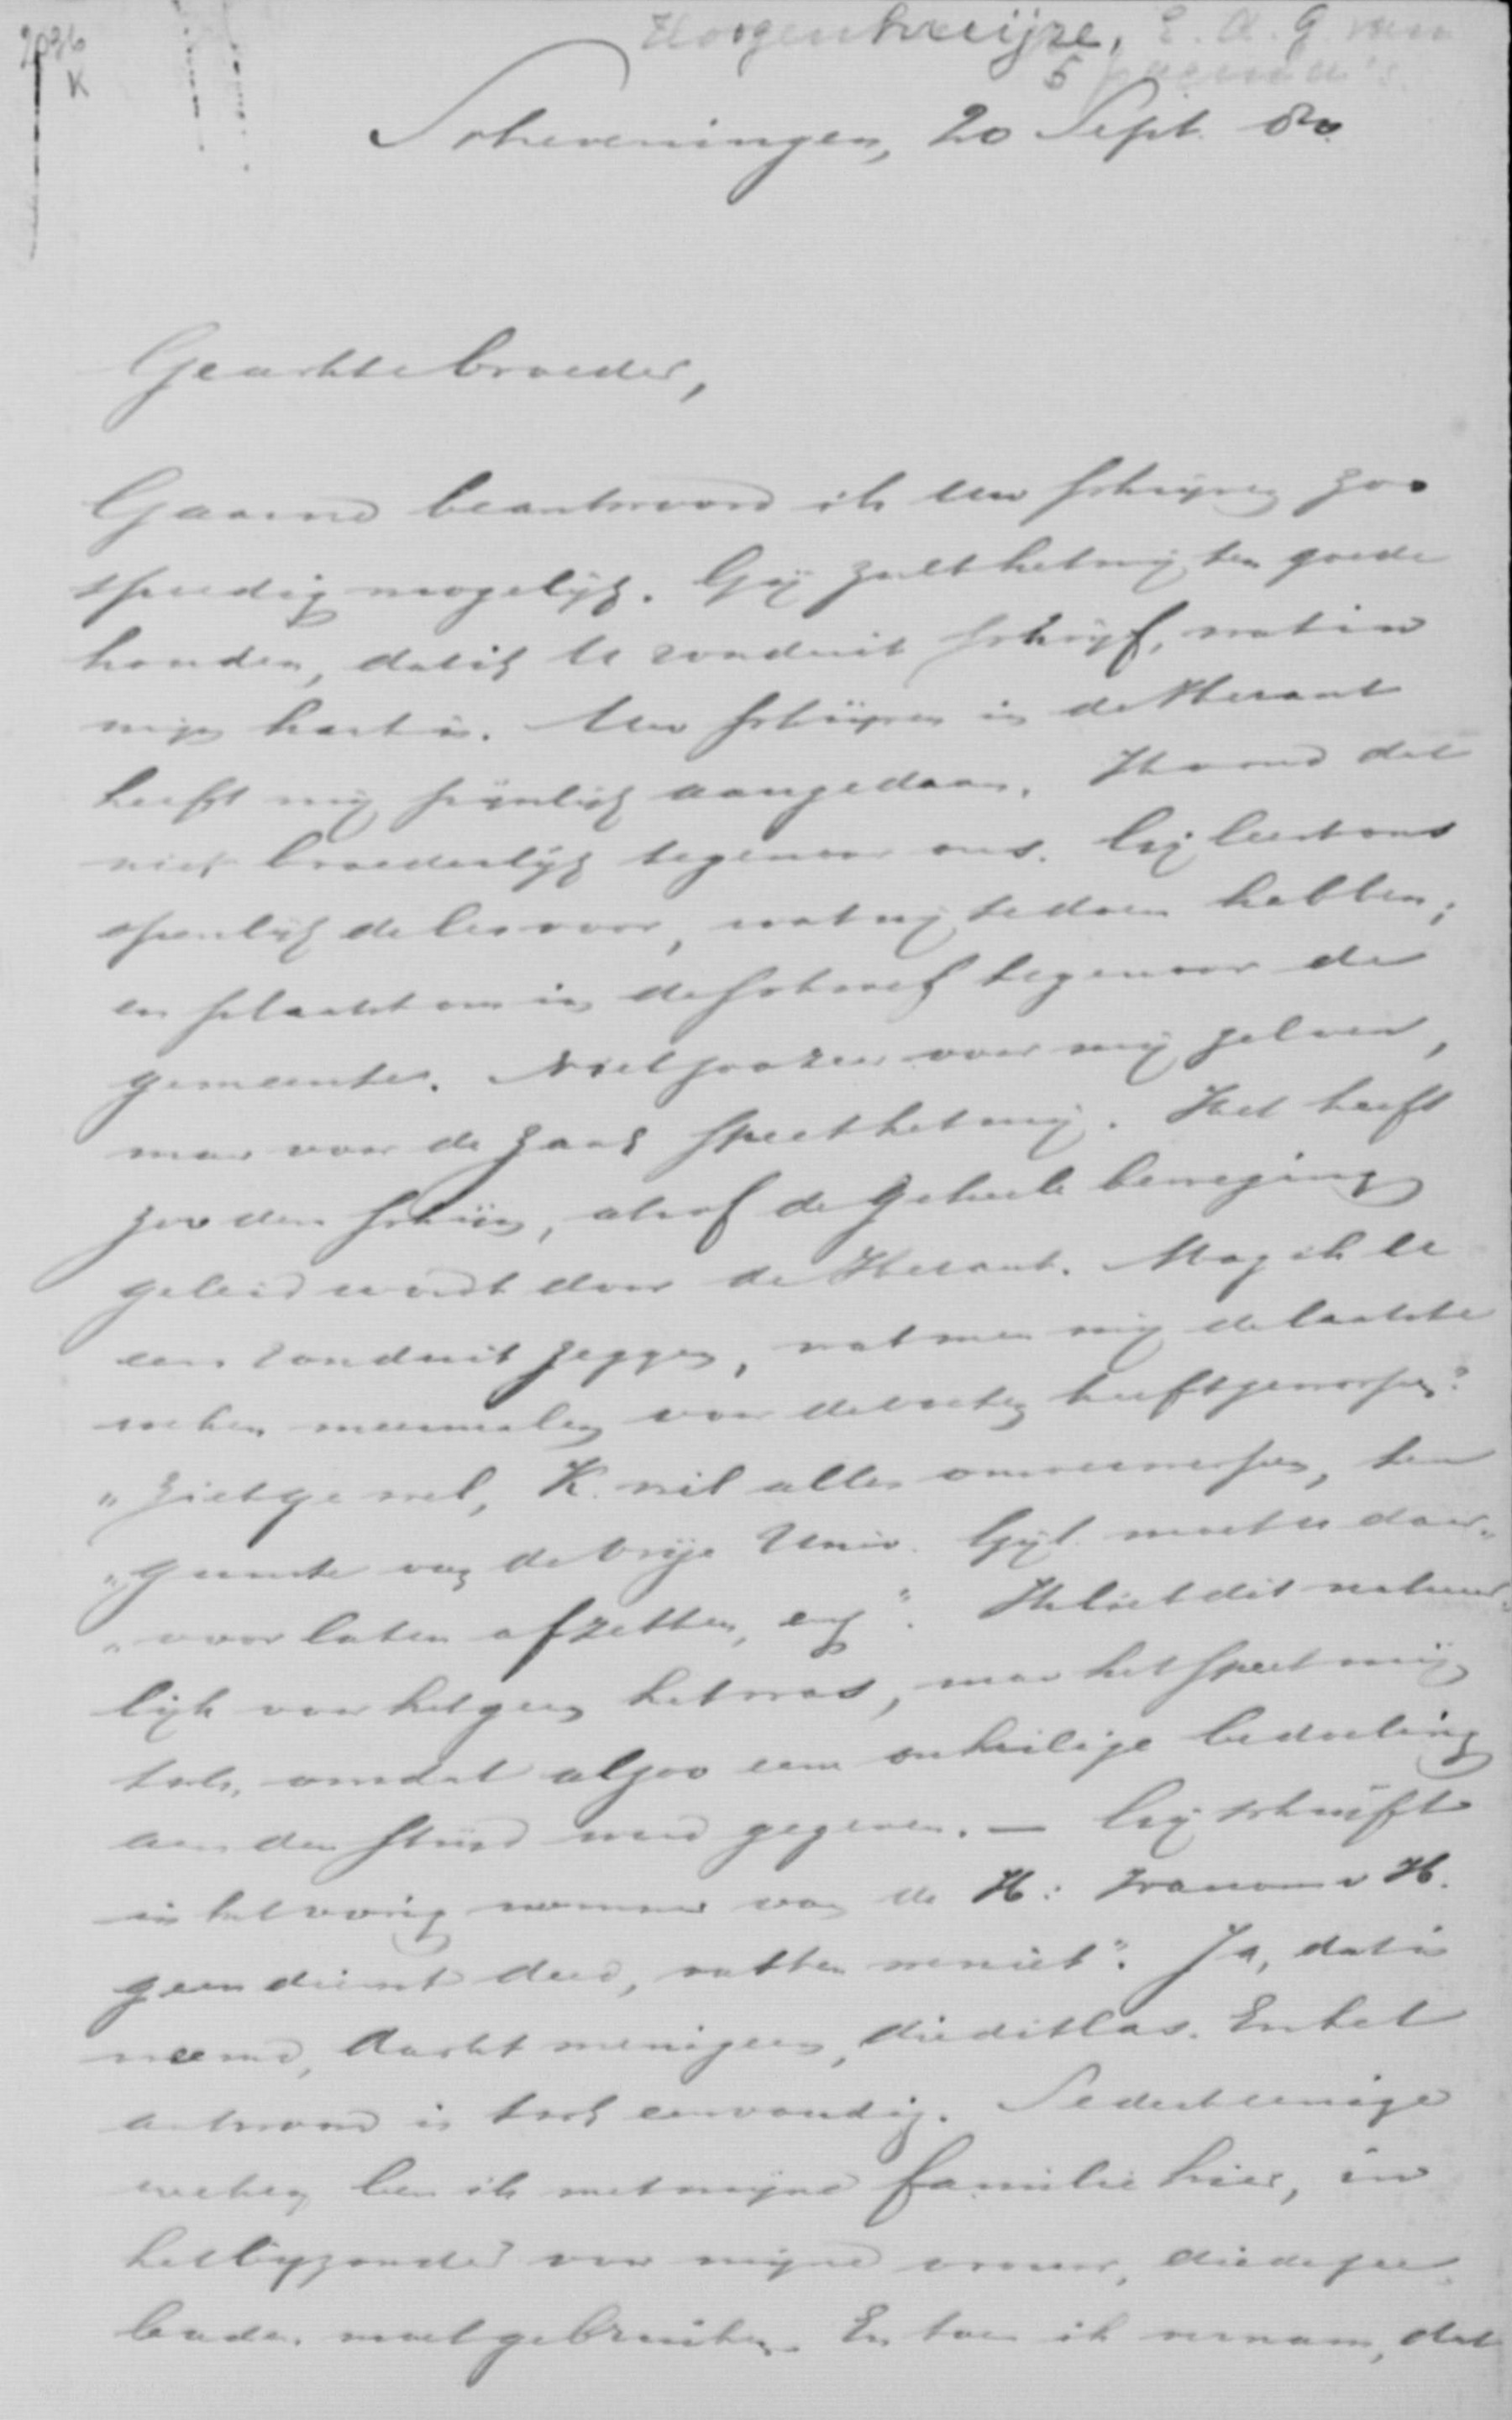 2036
K
Hoogenhuijze, E. A. G. van
5
Scheveningen, 20 Sept. 80
Geachte broeder,
Gaarne beantwoord ik Uw schrijven zoo
spoedig mogelijk. Gij zult het mij ten goede
houden, dat ik U ronduit schrijf, wat in
mijn hart is. Uw schrijven in de Heraut
heeft mij pijnlijk aangedaan. Het was
niet broederlijk tegenover ons. Gij leest ons
openlijk de les voor, wat wij te doen hebben;
en plaatst ons in de schaduw tegenover de
gemeente. Niet zoozeer voor mij zelven,
maar voor de zaak speet het mij. Het heeft
zoo den schijn, alsof de geheele beweging
geleid wordt door de Heraut. Mag ik U
eens ronduit zeggen, wat men mij de laatste
weken meermalen voor de voeten heeft geworpen?
"Ziet ge wel, K. wil alles omverwerpen, ten
"gunste van de Vrije Univ. Gijl. moet u daar-
"voor laten afzetten, enz". Ik liet dit natuur-
lijk voor hetgeen het was, maar het speet mij
toch, omdat alzoo eene onheilige bedoeling
aan den strijd werd gegeven. — Gij schrijft
in het vorig nommer van de H: Waarom v H.
geen dienst deed, vatten we niet". Ja, dat is
vreemd, dacht menigeen, die dit las. En het
antwoord is toch eenvoudig. Sedert eenige
weken ben ik met mijne familie hier, in
het bijzonder voor mijne vrouw, die de zee-
baden moet gebruiken. En toen ik vernam, dat